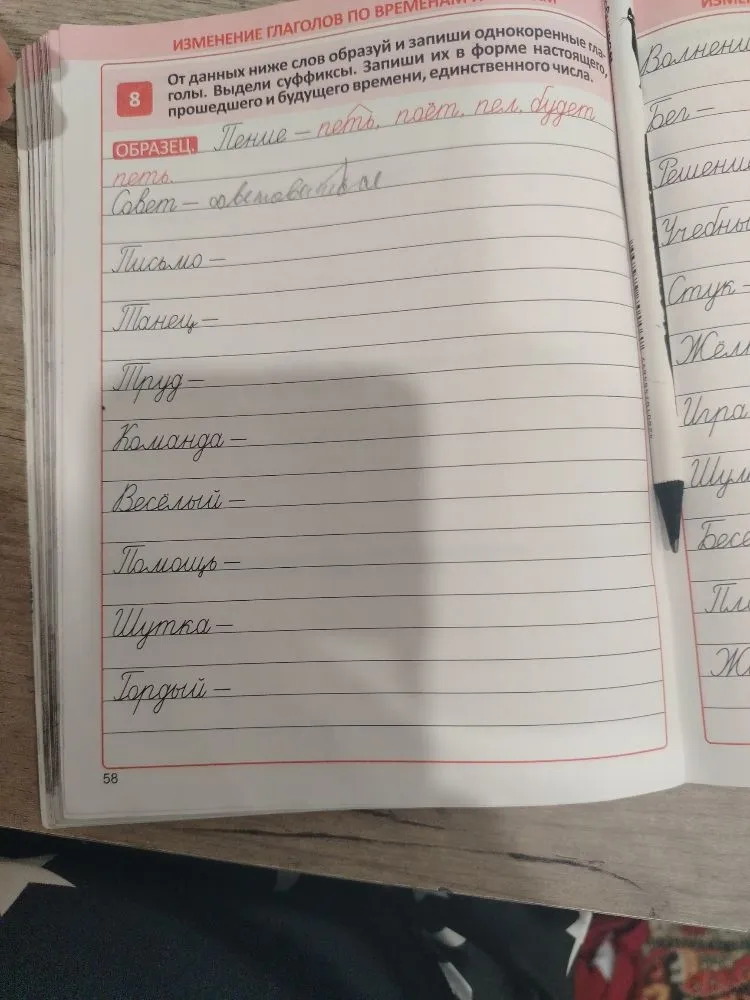 ИЗМЕНЕНИЕ ГЛАГОЛОВ ПО ВРЕМЕНАМ
8
От данных ниже слов образуй и запиши однокоренные гла-
голы. Выдели суффиксы. Запиши их в форме настоящего,
прошедшего и будущего времени, единственного числа.
ОБРАЗЕЦ. Пение – петь, поёт, пел, будет
петь.
Совет –
Письмо –
Танец –
Труд –
Команда –
Весёлый –
Помощь –
Шутка –
Гордый –
58
Бел –
Стук –
Игра